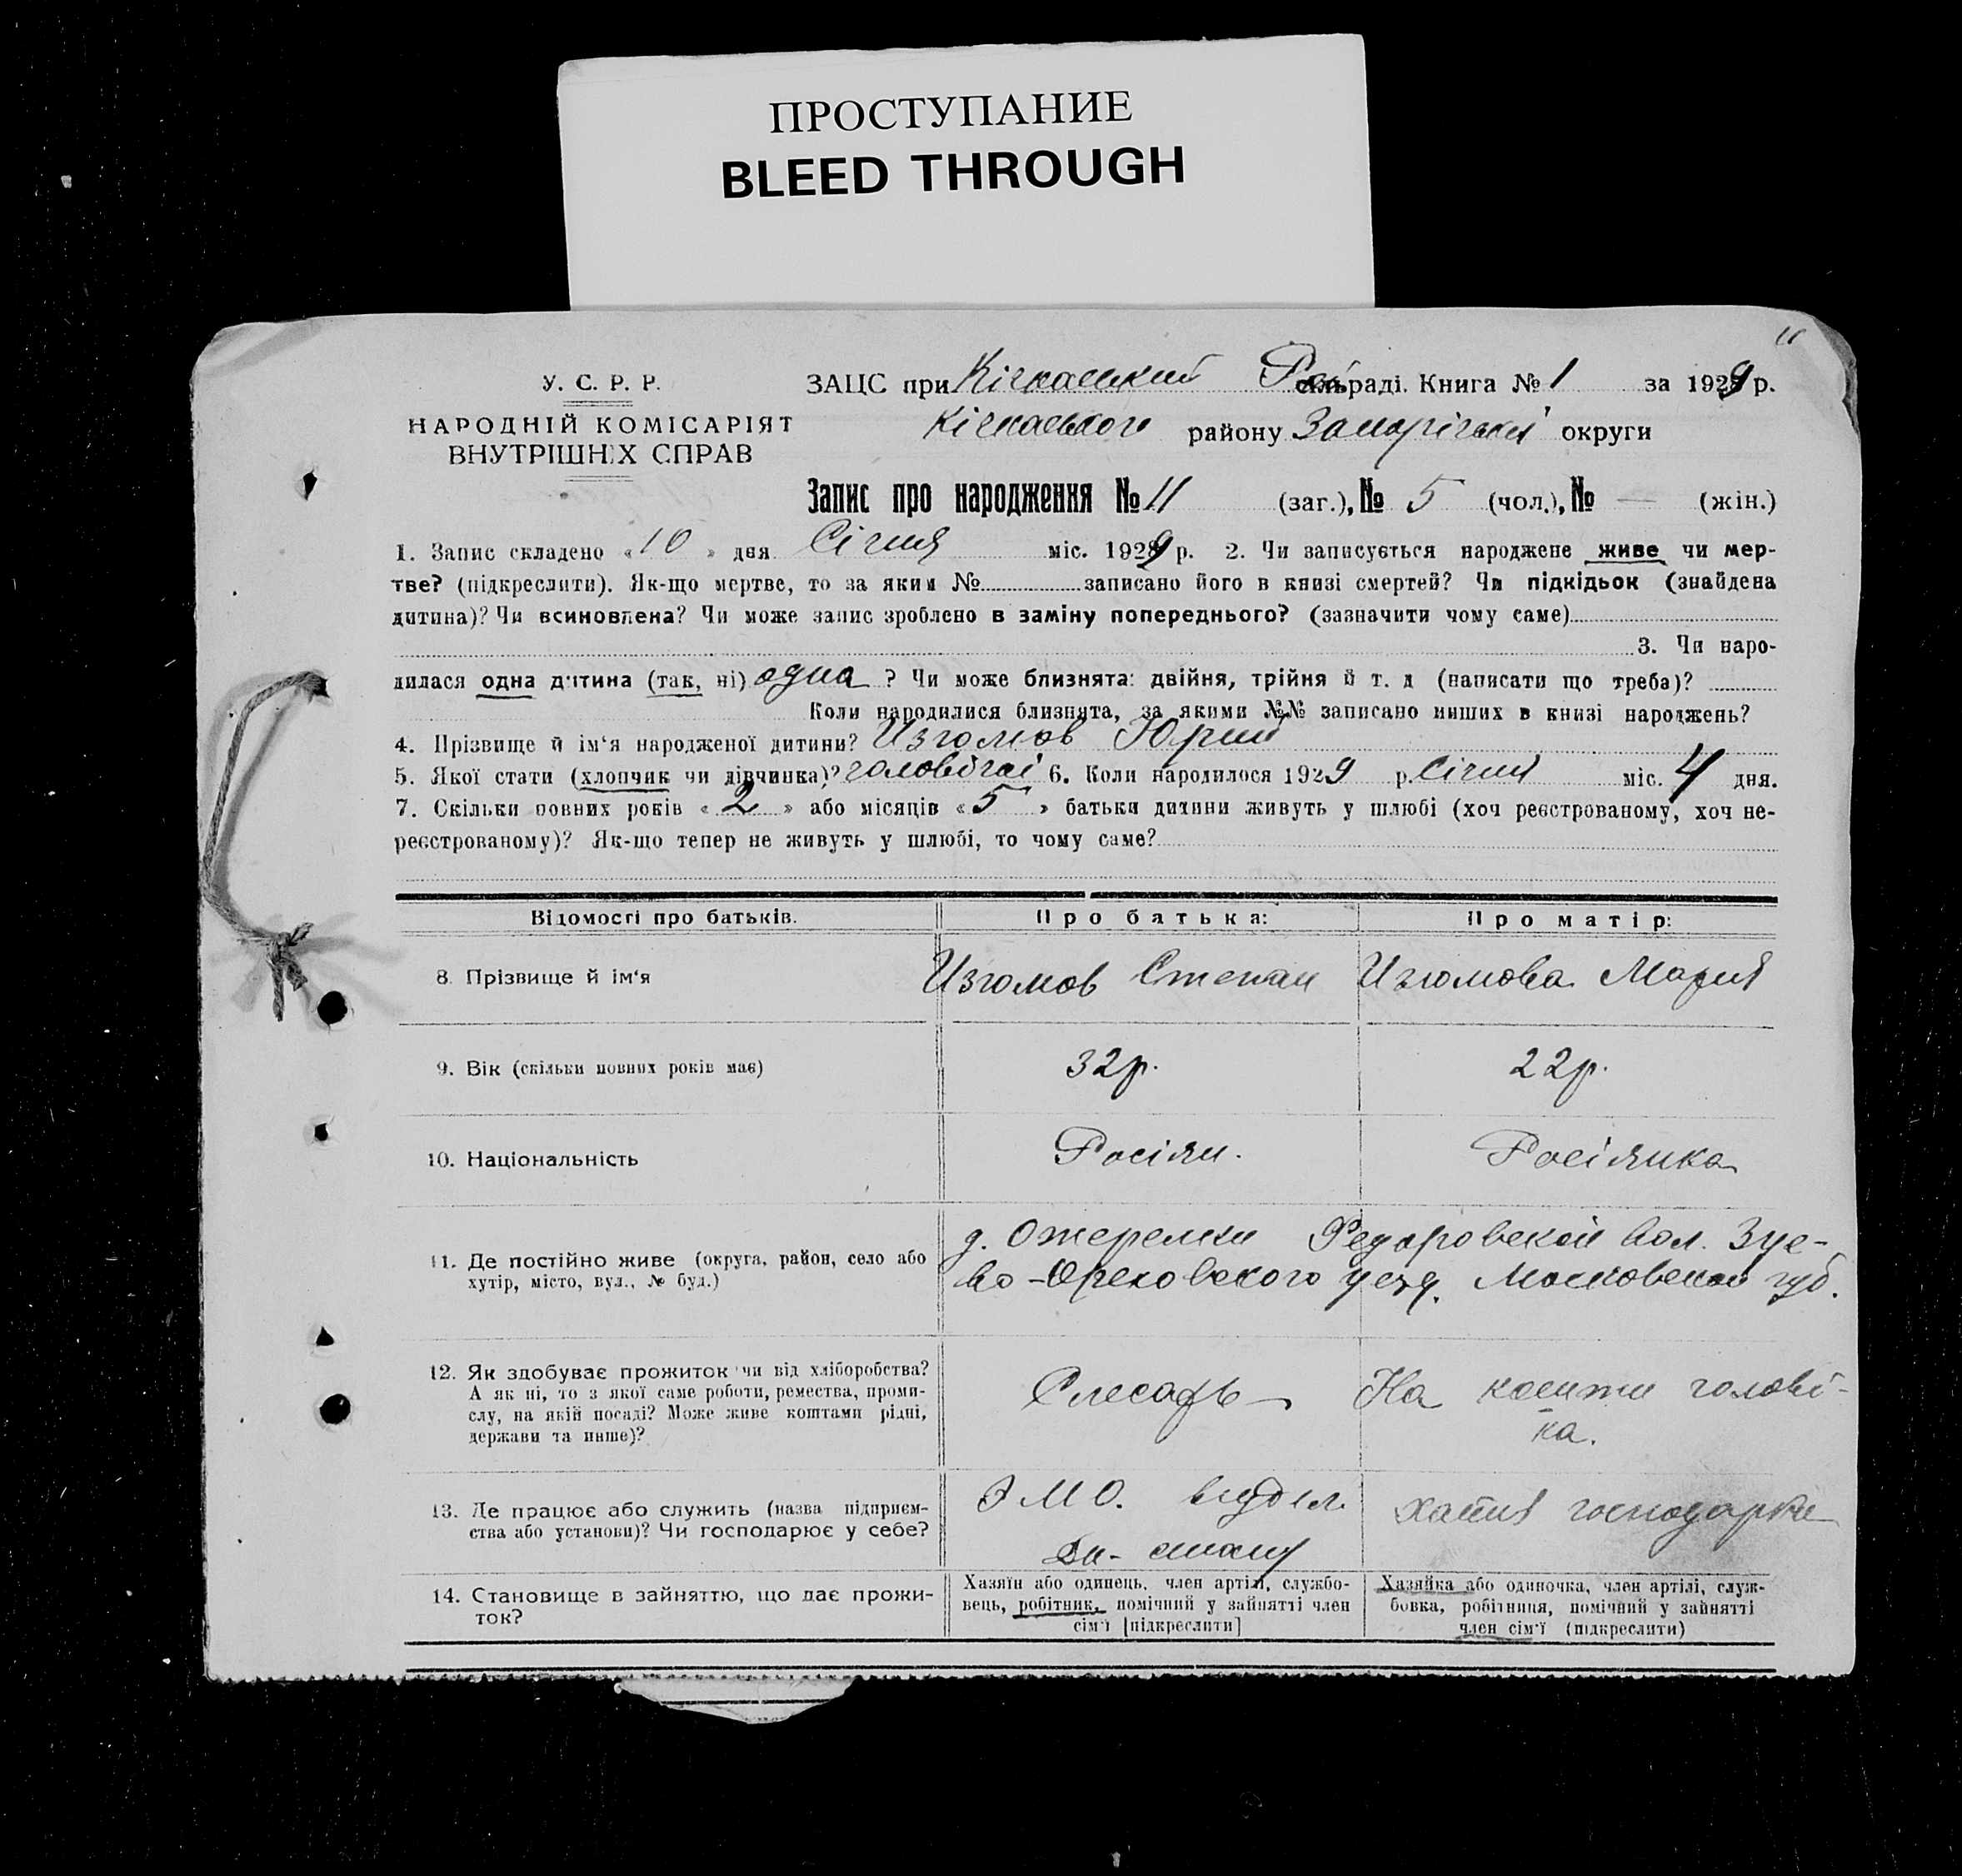 ПРОСТУПАНИЕ
BLEED THROUGH
11
У. С. Р. Р.
НАРОДНІЙ КОМІСАРІЯТ
ВНУТРІШНІХ СПРАВ
ЗАЦС при Кічкаський Рай раді. Книга № 1 за 1929 р.
Кічкаського району Запорізької округи
Запис про народження № 11 (заг.), № 5 (чол.), № — (жін.)
1. Запис складено «10» дня Січня міс. 1929 р. 2. Чи записується народжене живе чи мер-
тве? (підкреслити). Як-що мертве, то за яким № записано його в книзі смертей? Чи підкідьок (знайдена
дитина)? Чи всиновлена? Чи може запис зроблено в заміну попереднього? (зазначити чому саме)
3. Чи наро-
дилася одна дитина (так, ні) одна ? Чи може близнята: двійня, трійня й т. д (написати що треба)?
Коли народилися близнята, за якими №№ записано инших в книзі народжень?
4. Прізвище й ім'я народженої дитини? Изюмов Юрий
5. Якої стати (хлопчик чи дівчинка)? чоловічої 6. Коли народилося 1929 р. Січня міс. 4 дня.
7. Скільки повних років «2» або місяців «5» батьки дитини живуть у шлюбі (хоч реєстрованому, хоч не-
реєстрованому)? Як-що тепер не живуть у шлюбі, то чому саме?
Відомості про батьків. Про батька: Про матір:
8. Прізвище й ім'я Изюмов Степан Изюмова Мария
9. Вік (скільки повних років має) 32р. 22р.
10. Національність Росіян. Росіянка
11. Де постійно живе (округа, район, село або
хутір, місто, вул., № буд.)
д. Ожерелки Федоровской вол. Зуе-
во-Ореховского уезд. Московской губ.
12. Як здобуває прожиток чи від хліборобства?
А як ні, то з якої саме роботи, ремества, проми-
слу, на якій посаді? Може живе коштами рідні,
держави та инше)?
Слесарь На кошти чолові-
ка.
13. Де працює або служить (назва підприєм-
ства або установи)? Чи господарює у себе?
хатня господарка
14. Становище в зайняттю, що дає прожи-
ток?
Хазяїн або одинець, член артілі, службо-
вець, робітник, помічний у зайнятті член
сім'ї [підкреслити]
Хазяйка або одиночка, член артілі, служ-
бовка, робітниця, помічний у зайнятті
член сім'ї (підкреслити)